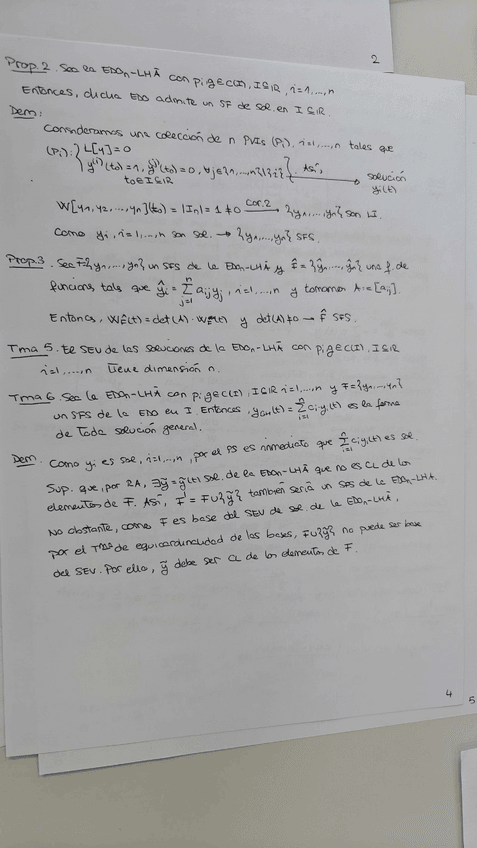 2
Prop.2. Sea la EDOn-LHÃ con pi,g∈C(I), I⊆ℝ, i=1,...,n
Entonces, dicha EDO admite un SF de sol. en I⊆ℝ.
Dem:
Consideramos una colección de n PVIs (Pi), i=1,...,n tales que
(Pi): { L[y]=0
y^(i)(t0)=1, y^(j)(t0)=0, ∀j∈{1,...,n}\{i} } Así, → solución yi(t)
t0∈I⊆ℝ
W[y1,y2,...,yn](t0)=|In|=1≠0 Cor.2 → {y1,...,yn} son LI.
Como yi, i=1,...,n son sol. → {y1,...,yn} SFS.
Prop.3. Sea F={y1,...,yn} un SFS de la EDOn-LHÃ y F̂={ŷ1,...,ŷn} una f. de
funciones tales que ŷi=∑_{j=1}^{n} aij yj, i=1,...,n y tomamos A:=[aij].
Entonces, WF̂(t)=det(A)·WF(t) y det(A)≠0 → F̂ SFS.
Tma 5. El SEV de las soluciones de la EDOn-LHÃ con pi,g∈C(I), I⊆ℝ
i=1,...,n tiene dimensión n.
Tma 6. Sea la EDOn-LHÃ con pi,g∈C(I), I⊆ℝ i=1,...,n y F={y1,...,yn}
un SFS de la EDO en I. Entonces, yGH(t)=∑_{i=1}^{n} ci yi(t) es la forma
de toda solución general.
Dem: Como yi es sol, i=1,...,n, por el PS es inmediato que ∑_{i=1}^{n} ci yi(t) es sol.
Sup. que, por RA, ∃ỹ=ỹ(t) sol. de la EDOn-LHÃ que no es CL de los
elementos de F. Así, F'=F∪{ỹ} también sería un SFS de la EDOn-LHÃ.
No obstante, como F es base del SEV de sol. de la EDOn-LHÃ,
por el Tma de equicardinalidad de las bases, F∪{ỹ} no puede ser base
del SEV. Por ello, ỹ debe ser CL de los elementos de F.
4
5